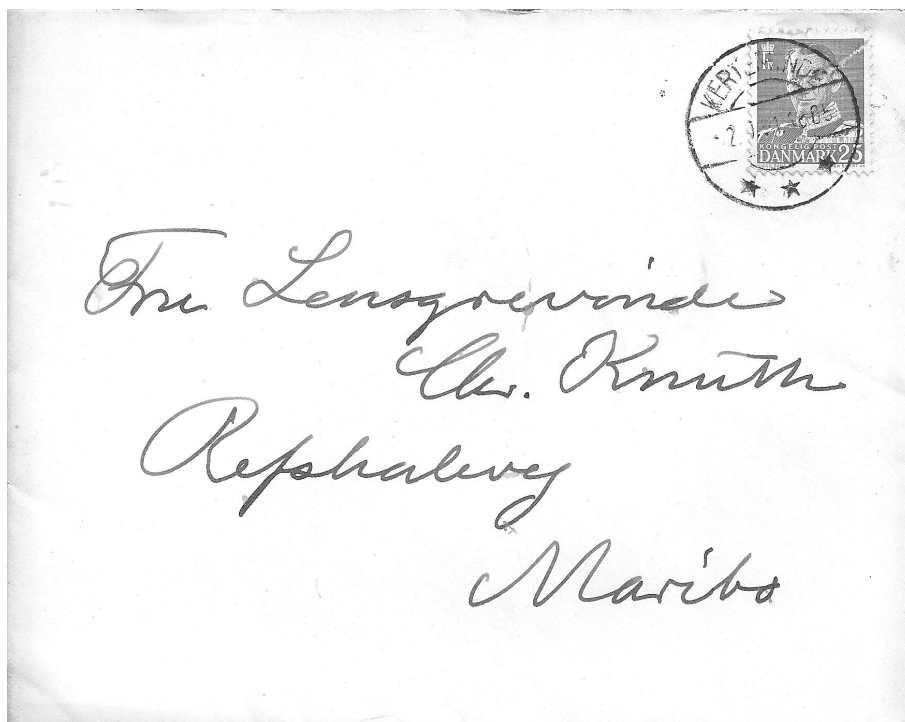 KERTEMINDE
KONGELIG POST
DANMARK 25
Fru Lensgrevinde
Chr. Knuth
Refshalevej
Maribo